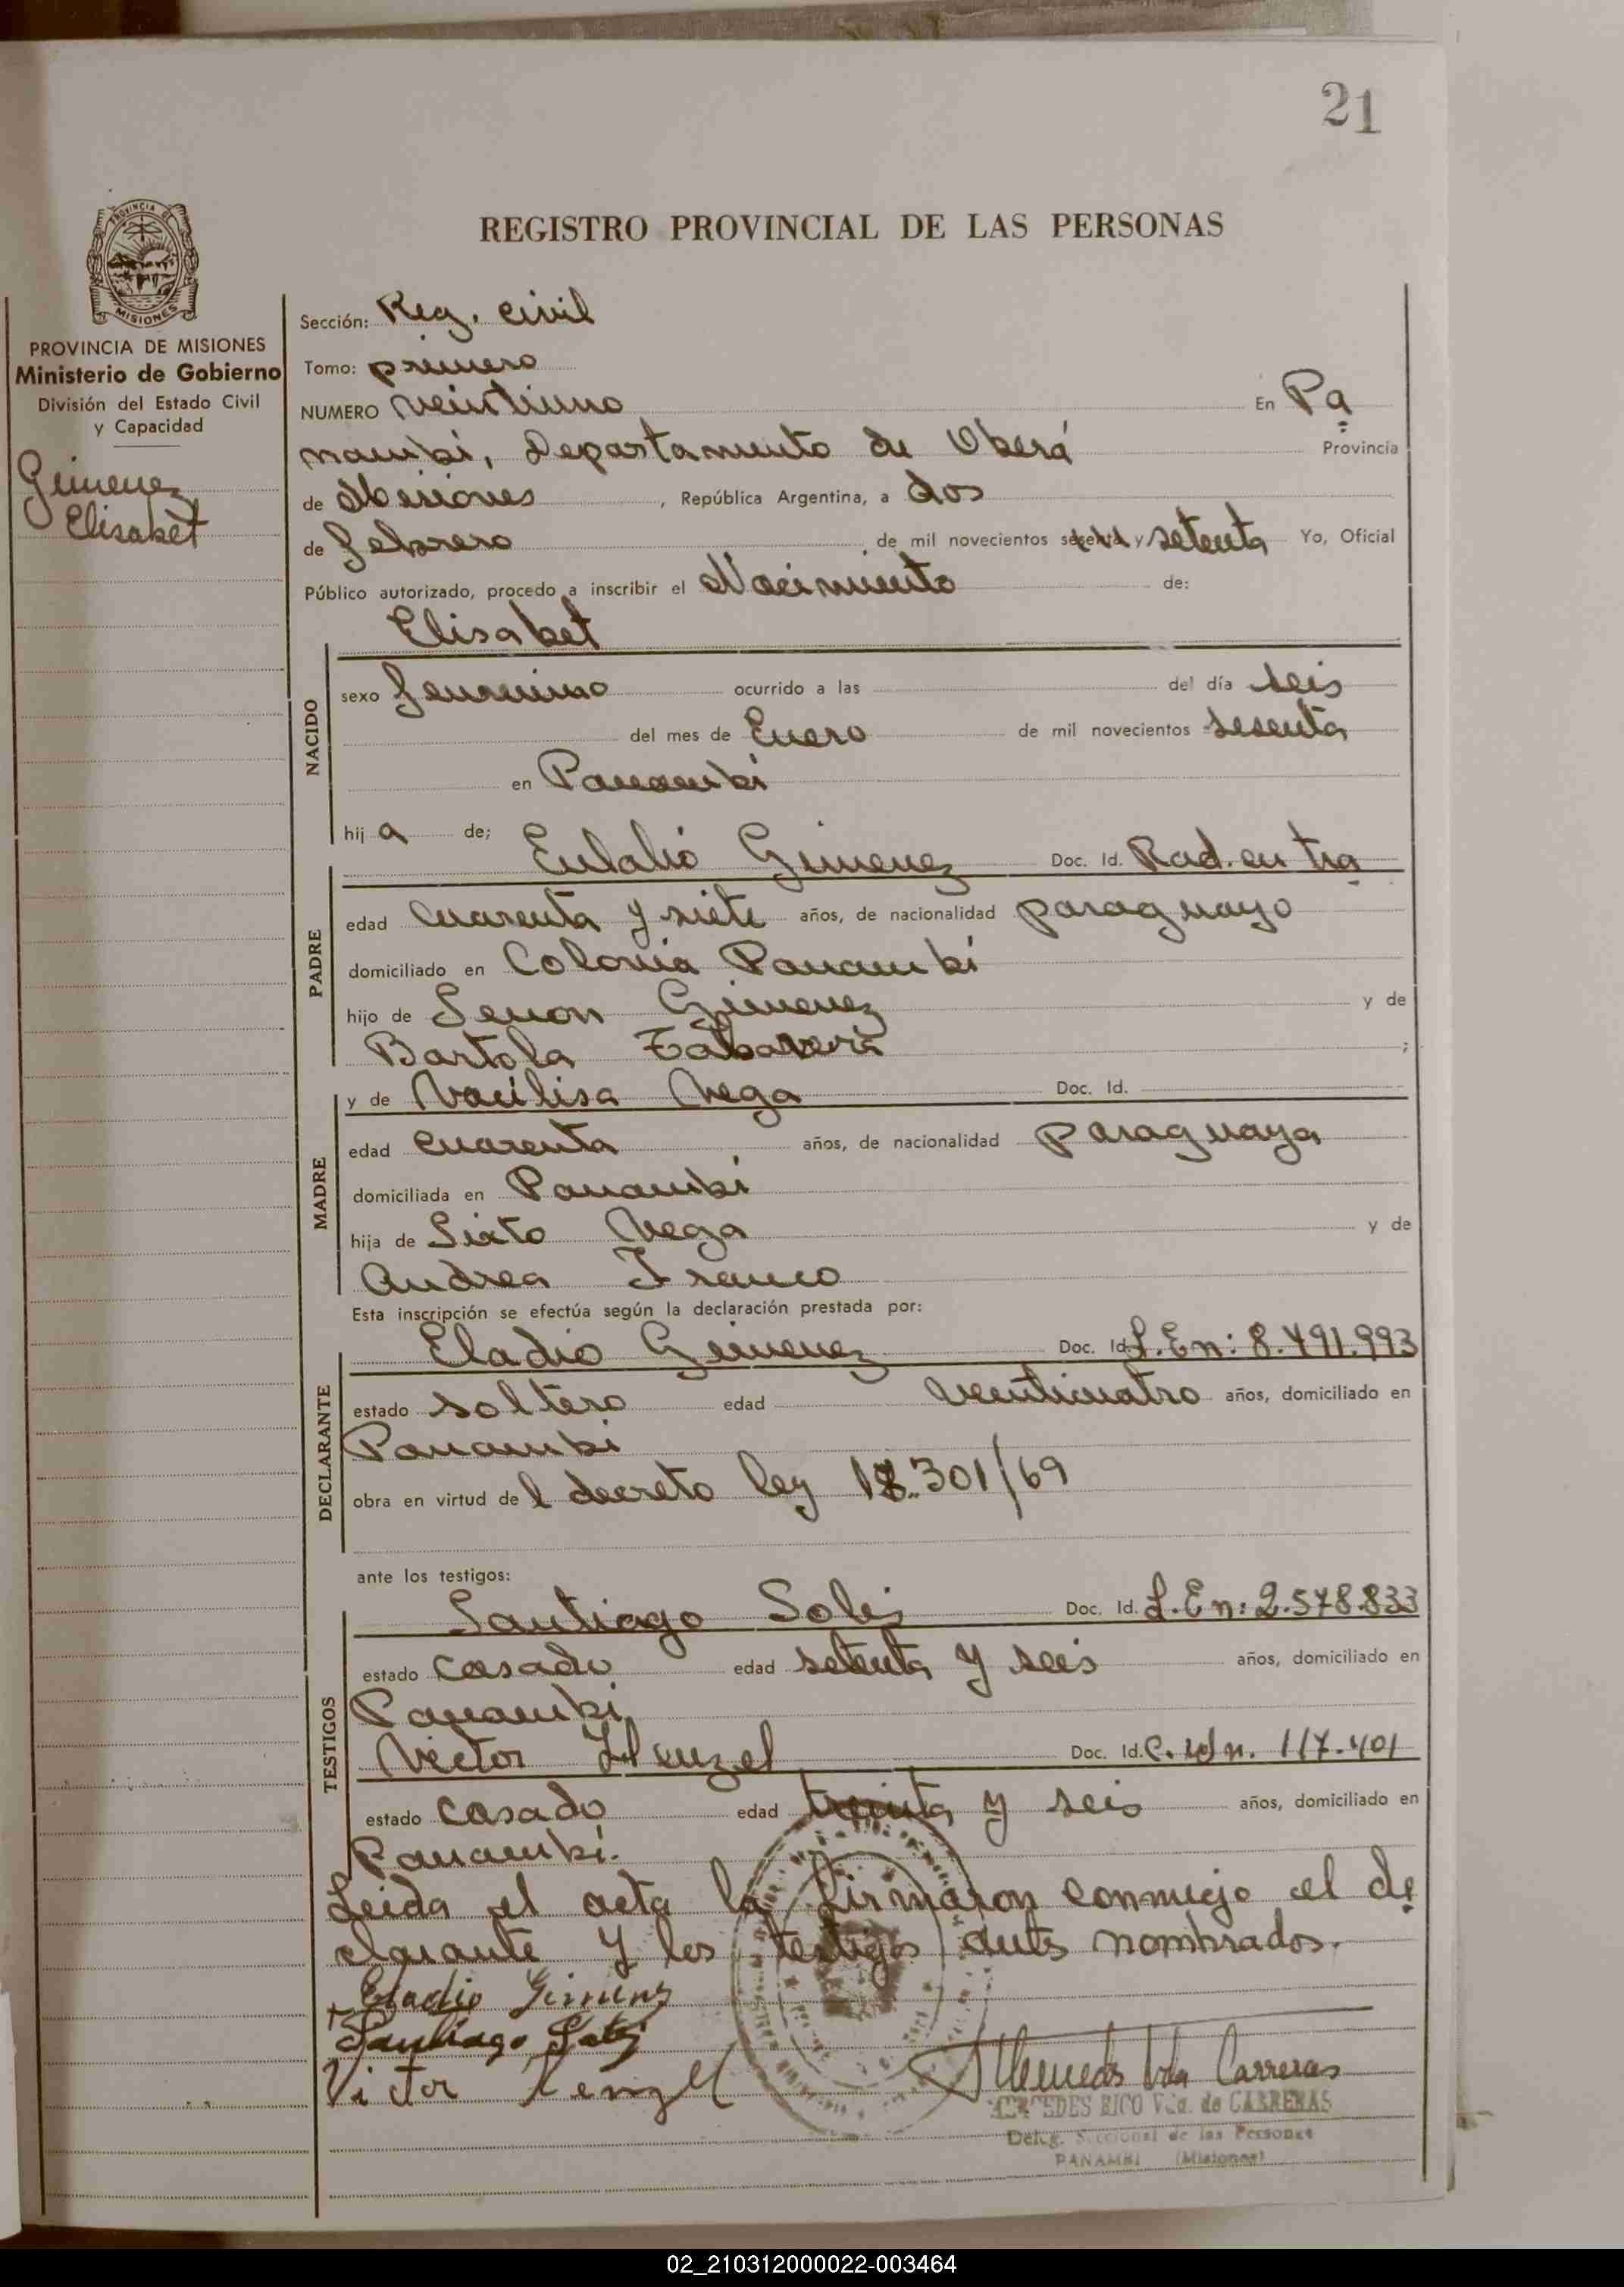 21
PROVINCIA DE
MISIONES
REGISTRO PROVINCIAL DE LAS PERSONAS
PROVINCIA DE MISIONES
Ministerio de Gobierno
División del Estado Civil
y Capacidad
Gimenez
Elisabet
Sección: Reg. civil
Tomo: primero
NUMERO veintiuno En Pa
nambi, Departamento de Oberá Provincia
de Misiones, República Argentina, a dos
de febrero de mil novecientos sesenta y setenta Yo, Oficial
Público autorizado, procedo a inscribir el Nacimiento de:
Elisabet
NACIDO
sexo femenino ocurrido a las del día seis
del mes de Enero de mil novecientos sesenta
en Panambi
hij a de;
PADRE
Eulalio Gimenez Doc. Id. Rad. en tra
edad cuarenta y siete años, de nacionalidad paraguayo
domiciliado en Colonia Panambi
hijo de Senon Gimenez y de
Bartola ;
MADRE
y de Vacilisa Vega Doc. Id.
edad cuarenta años, de nacionalidad paraguaya
domiciliada en Panambi
hija de Sixto Vega y de
Andrea Franco
Esta inscripción se efectúa según la declaración prestada por:
DECLARANTE
Eladio Gimenez Doc. Id. L.En: 8.491.993
estado soltero edad veinticuatro años, domiciliado en
Panambi
obra en virtud de l decreto ley 18.301/69
ante los testigos:
TESTIGOS
Santiago Solis Doc. Id. L.En: 2.578.833
estado casado edad setenta y seis años, domiciliado en
Panambi
Victor Henzel Doc. Id. C. Id n. 117.401
estado casado edad treinta y seis años, domiciliado en
Panambi.
Leida el acta la firmaron conmigo el de
clarante y los testigos antes nombrados.
Eladio Gimenz
Santiago Solis
Victor Henzel
Mercedes Vda Carreras
MERCEDES RICO Vda. de CARRERAS
Deleg. Seccional de las Personas
PANAMBI (Misiones)
02_210312000022-003464